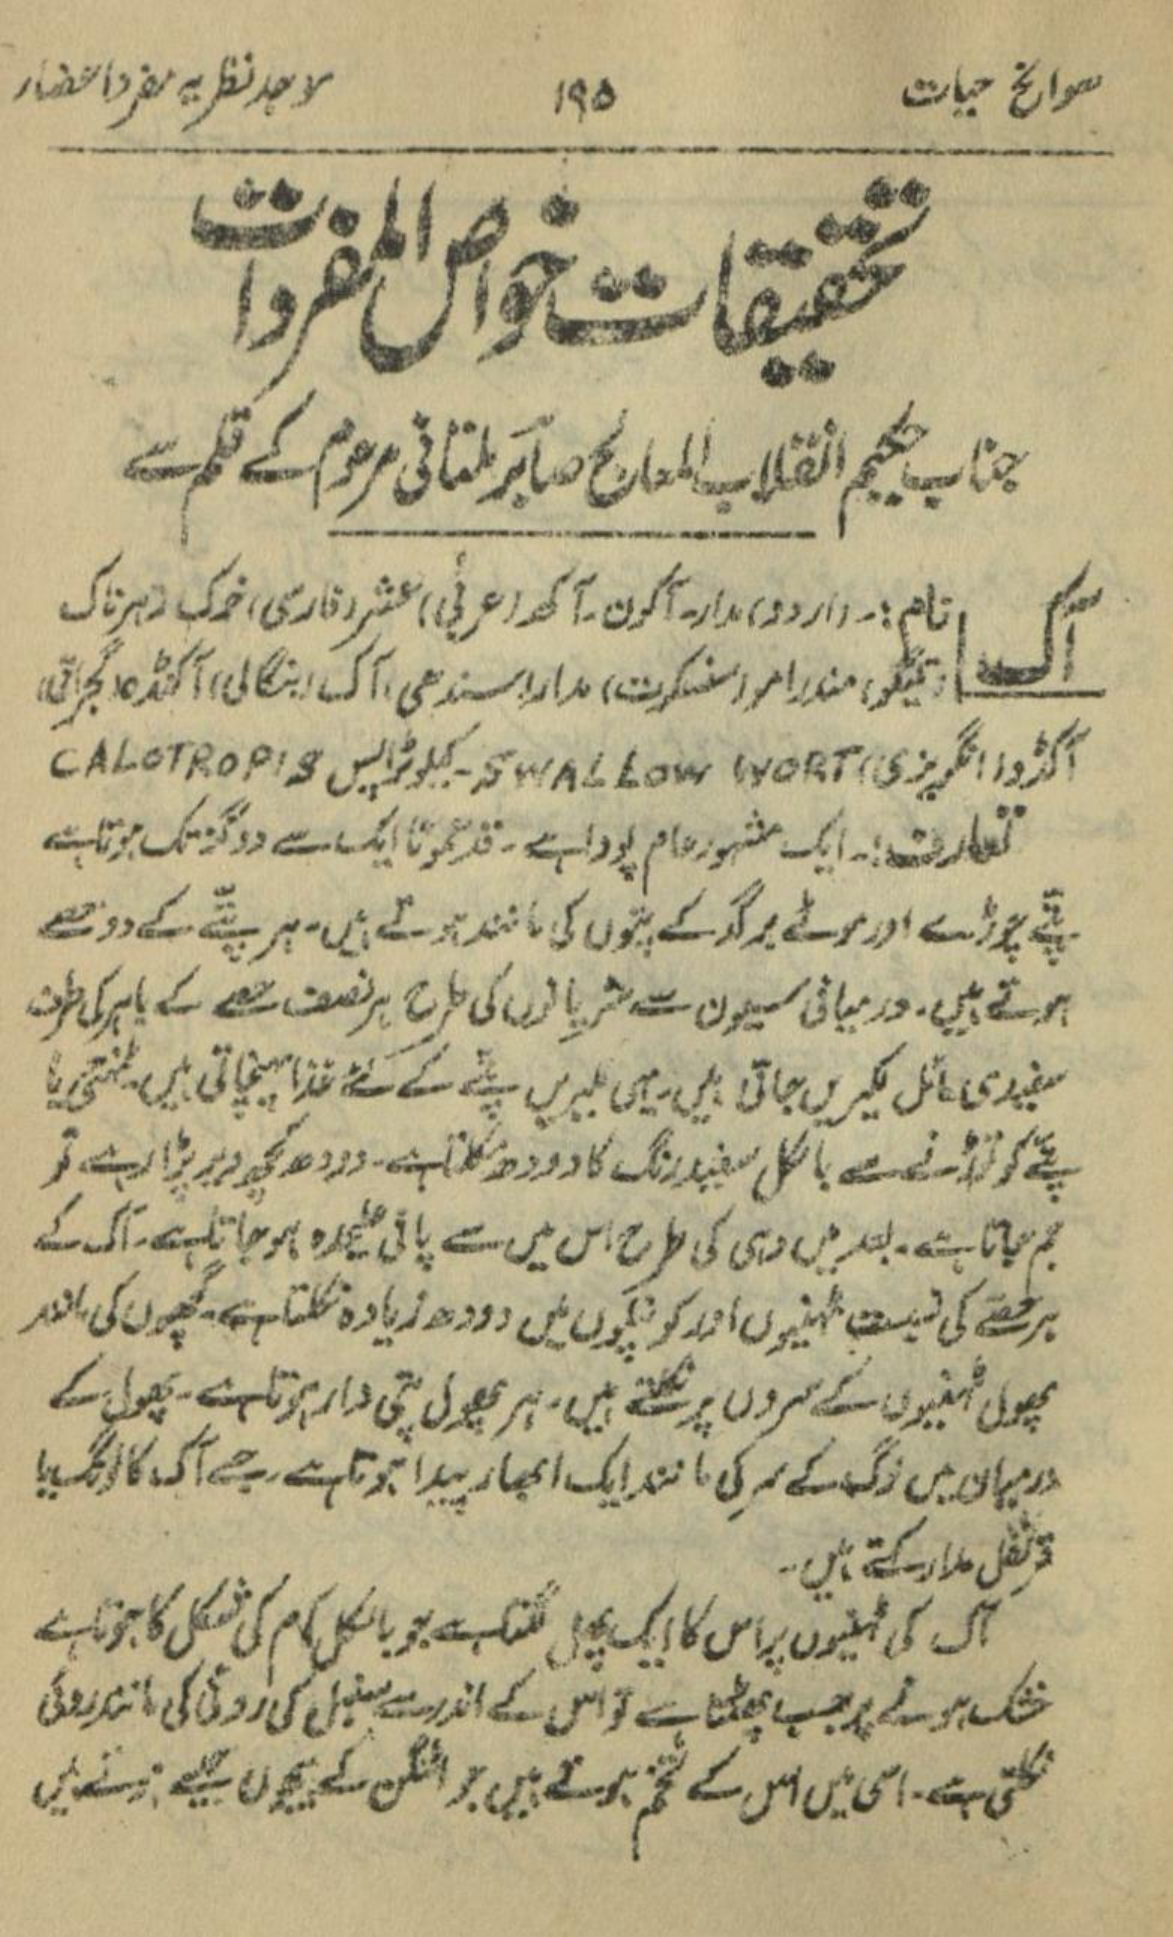 سوانح حیات ۱۹۵ لاہد نظریہ مفرد اعضاء
تحقیقات خواص المفردات
جناب حکیم انقلاب المعالج صابر ملتانی مرحوم کے قلم سے
آک
نام :۔ (اردو) مدار۔ آکون۔ آکھ (عربی) عشر (فارسی) خوک زہرناک
(تیلگو) مندرامو (سنسکرت) مدار (سندھی) آک (بنگالی) آکنڈہ (گجراتی)
آکڑو (انگریزی) SWALLOW WORT۔ کیلوٹراپس CALOTROPIS
تعارف :۔ ایک مشہور عام پودا ہے۔ قد عموماً ایک سے دو گز تک ہوتا ہے
پتے چوڑے اور موٹے برگد کے پتوں کی مانند ہوتے ہیں۔ ہر پتے کے دو حصے
ہوتے ہیں۔ درمیانی سیون سے شریانوں کی طرح ہر نصف حصے کے باہر کی طرف
سفیدی مائل لکیریں جاتی ہیں۔ یہی لکیریں پتے کے لئے غذا پہنچاتی ہیں۔ ٹہنی یا
پتے کو توڑنے سے بالکل سفید رنگ کا دودھ نکلتا ہے۔ دودھ کچھ دیر پڑا رہے تو
جم جاتا ہے۔ بعد میں دہی کی طرح اس میں سے پانی علیحدہ ہو جاتا ہے۔ آک کے
ہر حصے کی نسبت ٹہنیوں اور کونپلوں میں دودھ زیادہ نکلتا ہے۔ گچھوں کی مانند
پھول ٹہنیوں کے سروں پر نکلتے ہیں۔ ہر پھول پتی دار ہوتا ہے۔ پھول کے
درمیان میں لونگ کے سر کی مانند ایک ابھار پیدا ہوتا ہے۔ جسے آک کا لونگ یا
قرنفل مدار کہتے ہیں۔
آک کی ٹہنیوں پر اس کا ایک پھل لگتا ہے جو بالکل آم کی شکل کا ہوتا ہے
خشک ہونے پر جب پھٹتا ہے تو اس کے اندر سے سنبل کی روئی کی مانند روئی
نکلتی ہے۔ اسی میں اس کے تخم ہوتے ہیں جو کے بیجوں جیسے ہوتے ہیں